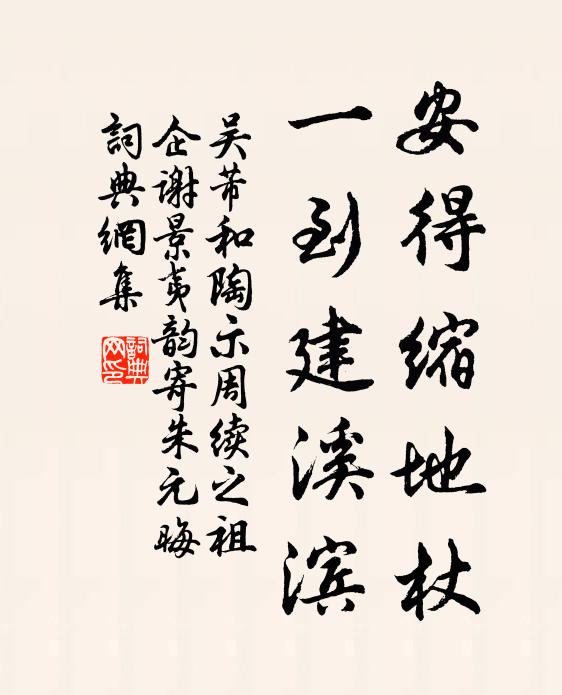 安得缩地杖
一到建溪滨
吴芾和陶示周续之祖
企谢景夷韵寄朱元晦
词典網集
詞典網印